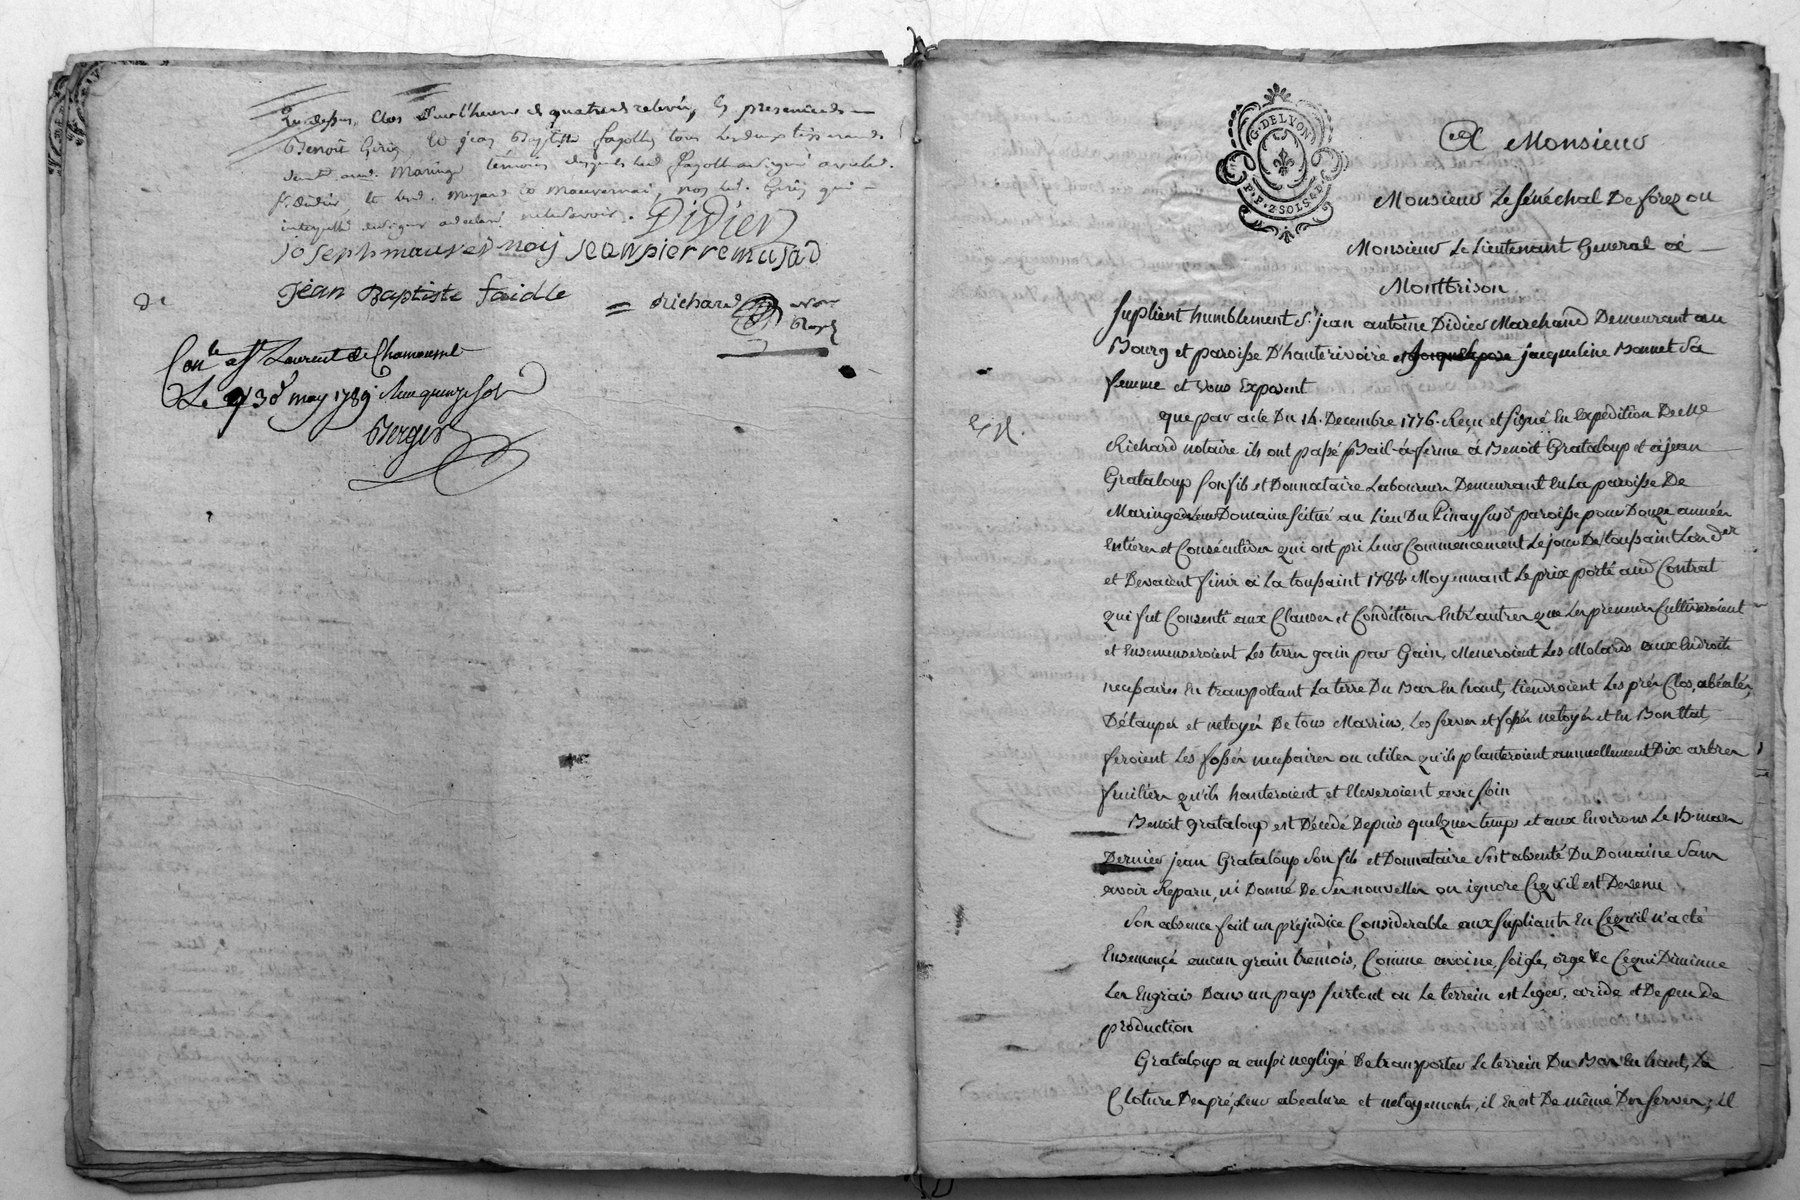 Les dessus, clos sur l'heure de quatre de relevée, en presence de
Benoit Giri, et jean Baptiste fayolle, tous les deux tisserands
dem.t aud. Maringe temoins desquels led. fayolle a signé avec led.
s.r didier le led. Mujard et Mauvernai, non led. Giri qui
interpellé de signer a declaré ne le savoir.
Didier
Joseph mauvernoij jean pierre mujad
jean Baptiste faidle = Richard
Con.le a S.t Laurent de Chamousset
Le 30 may 1789 Recu quinze sols
Berger
G. DE LYON
P. P. 2 SOLS 8 D.
A Monsieur
Monsieur Le sénéchal De forez ou
Monsieur Le Lieutenant General à
Montbrison
Suplient humblement S.r jean antoine Didier Marchand Demeurant au
Bourg et paroisse D'hauterivoire et jacqueline Bonnet Sa
femme et vous Exposent
que par acte Du 14. Decembre 1776. Reçu et signé En Expedition De M.e
Richard notaire ils ont passé Bail-à-ferme à Benoit Grataloup et à jean
Grataloup son fils et Donnataire Laboureur Demeurant En La paroisse De
Maringe Leur Domaine scitué au Lieu Du Pinay susd. paroisse pour Douze années
Entieres et Consécutives qui ont pri Leur Commencement Le jour De toussaint Lors d.er
et Devaient finir à La toussaint 1788. Moyennant Le prix porté aud. Contrat
qui fut Consenti aux Clauses et Conditions Entr'autres que Les preneurs Cultiveroient
et Ensemenseroient Les terres gain par Gain, Meneroient Les Molards aux Endroits
necessaires En transportant La terre Du Bas En haut, tiendroient Les prés Clos, abéalés,
Détaupés et netoyés De tous Marrins, Les serves et fossés netoyés et En Bon Etat
feroient Les fossés necessaires ou utiles qu'ils planteroient annuellement Dix arbres
fruitiers qu'ils hanteroient et Eleveroient avec soin
Benoit Grataloup est Décédé Depuis quelques temps et aux Environs Le 15. mars
Dernier jean Grataloup son fils et Donnataire s'est absenté Du Domaine Sans
avoir Reparu, ni Donné De Ses nouvelles on ignore Ce qu'il est Devenu
Son absence fait un préjudice Considerable aux supliants En Ce qu'il n'a été
Ensemencé aucun grain tremois, Comme avoine, seigle, orge &c Ce qui Diminue
Les Engrais Dans un pays surtout ou Le terrein est Leger, aride et De peu De
production
Grataloup a aussi negligé De transporter Le terrein Du Bas En haut, La
Cloture Des prés, Leur abealure et netoyements, il En est De même Des serves; il